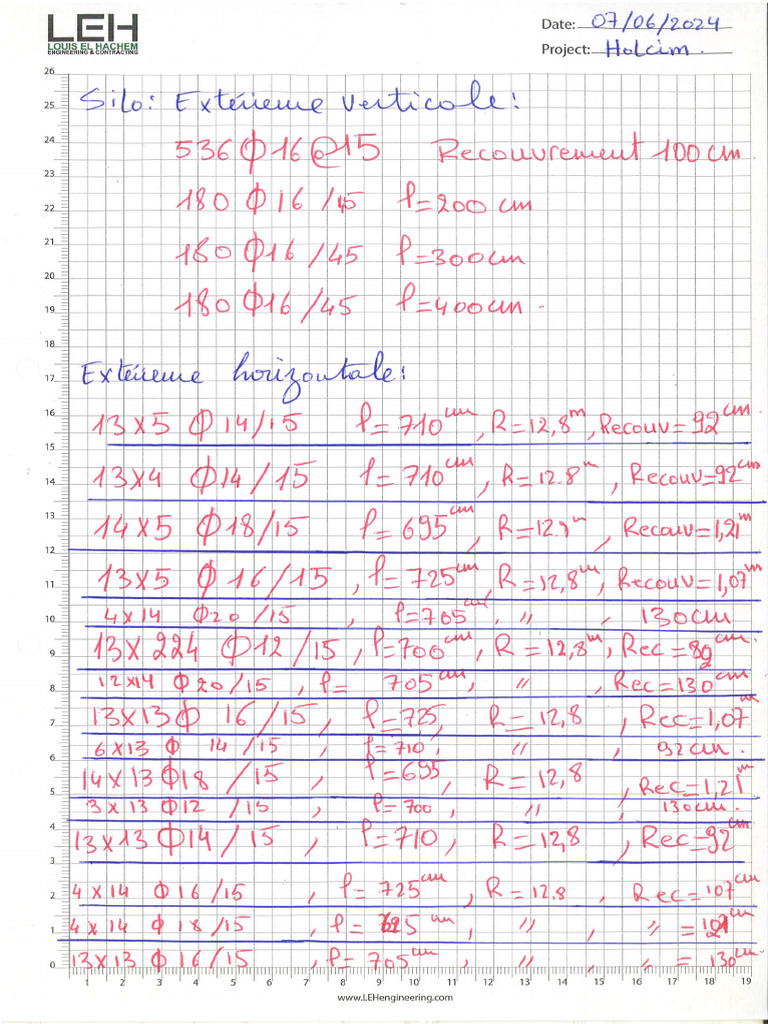 LEH
LOUIS EL HACHEM
ENGINEERING & CONTRACTING
Date: 07/06/2024
Project: Holcim.
Silo: Extérieure verticale:
536 ϕ 16 @ 15 Recouvrement 100 cm
180 ϕ 16 /45 l=200 cm
180 ϕ 16 /45 l=300cm
180 ϕ 16 /45 l=400cm.
Extérieure horizontale:
13x5 ϕ 14/15 l=710 cm, R=12,8 m, Recouv=92 cm.
13x4 ϕ 14/15 l=710 cm, R=12.8 m, Recouv=92 cm
14x5 ϕ 18/15 l=695 cm, R=12.9 m, Recouv=1,21 m
13x5 ϕ 16/15, l=725 cm, R=12,8 m, Recouv=1,07 m
4x14 ϕ 20/15 l=705 cm, ", 130cm
13x224 ϕ 12/15, l=700 cm, R=12,8 m, Rec=89 cm.
12x14 ϕ 20/15, l= 705 cm, ", Rec=130 cm
13x13 ϕ 16/15, l=725, R=12,8, Rec=1,07 m
6x13 ϕ 14/15, l=710, ", 92cm.
14x13 ϕ 18/15, l=695, R=12,8, Rec=1,21 m
3x13 ϕ 12/15, l=700, ", 130cm.
13x13 ϕ 14/15, l=710, R=12,8, Rec=92 cm
4x14 ϕ 16/15, l=725 cm, R=12.8, Rec=107 cm
4x14 ϕ 18/15, l= cm, ", " = cm
13x13 ϕ 16/15, l=705 cm, ", " = 130 cm
www.LEHengineering.com